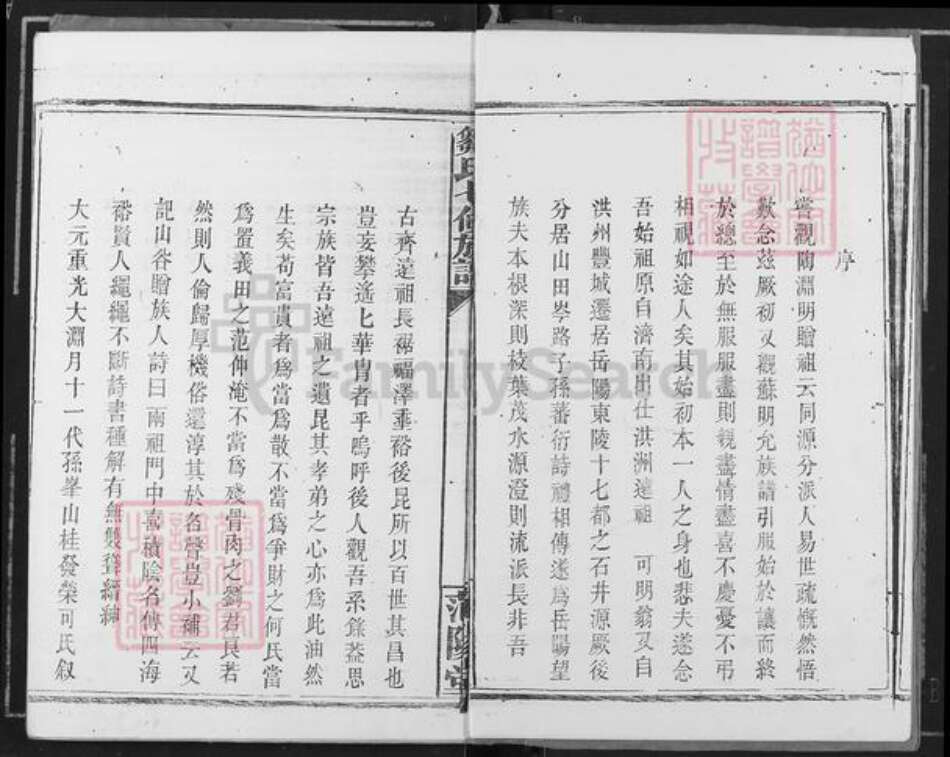 序
嘗觀陶淵明贈祖云同源分派人易世疏慨然悟
歎念茲厥初又觀蘇明允族譜引服始於讓而終
於總至於無服服盡則親盡情盡喜不慶憂不弔
相視如途人矣其始初本一人之身也悲夫遂念
吾始祖原自濟南出仕淇洲達祖 可明翁又自
洪州豐城遷居岳陽東陵十七都之石井源厥後
分居山田岑路子孫蕃衍詩禮相傳遂為岳陽望
族夫本根深則枝葉茂水源澄則流派長非吾
鄒氏七修族譜
范陽堂
古齊達祖長裕福澤垂裕後昆所以百世其昌也
豈妄攀遙七華冑者乎嗚呼後人觀吾系錄葢思
宗族皆吾遠祖之遺昆其孝弟之心亦為此油然
生矣苟富貴者為當為散不當為爭財之何氏當
為置義田之范仲淹不當為殘骨肉之劉君良若
然則人倫歸厚機俗還淳其於名聲豈小補云又
記山谷贈族人詩曰兩祖門中喜積陰名傳四海
裕賢人繩繩不斷詩書種解有無雙
大元重光大淵月十一代孫峯山桂發榮可氏叙
FamilySearch